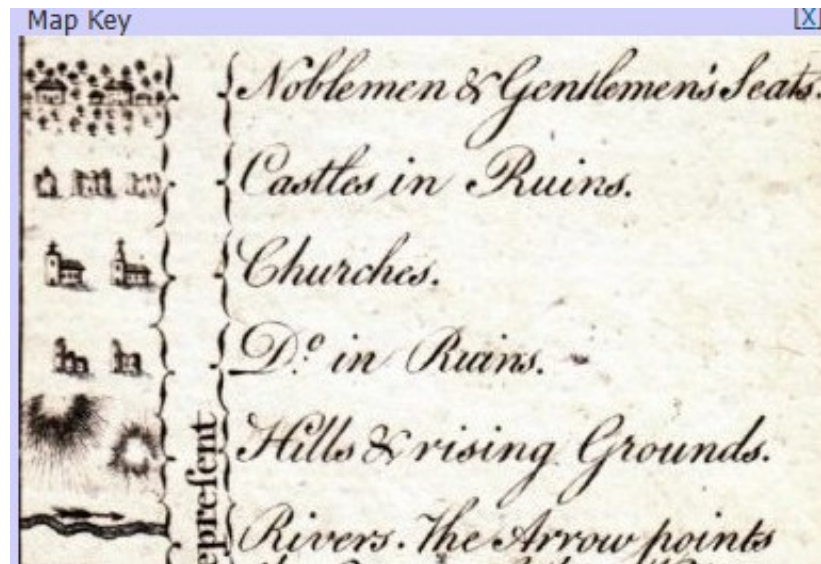 Map Key [X]
Noblemen & Gentlemen's Seats.
Castles in Ruins.
Churches.
D.º in Ruins.
Hills & rising Grounds.
epreſent
Rivers. The Arrow points